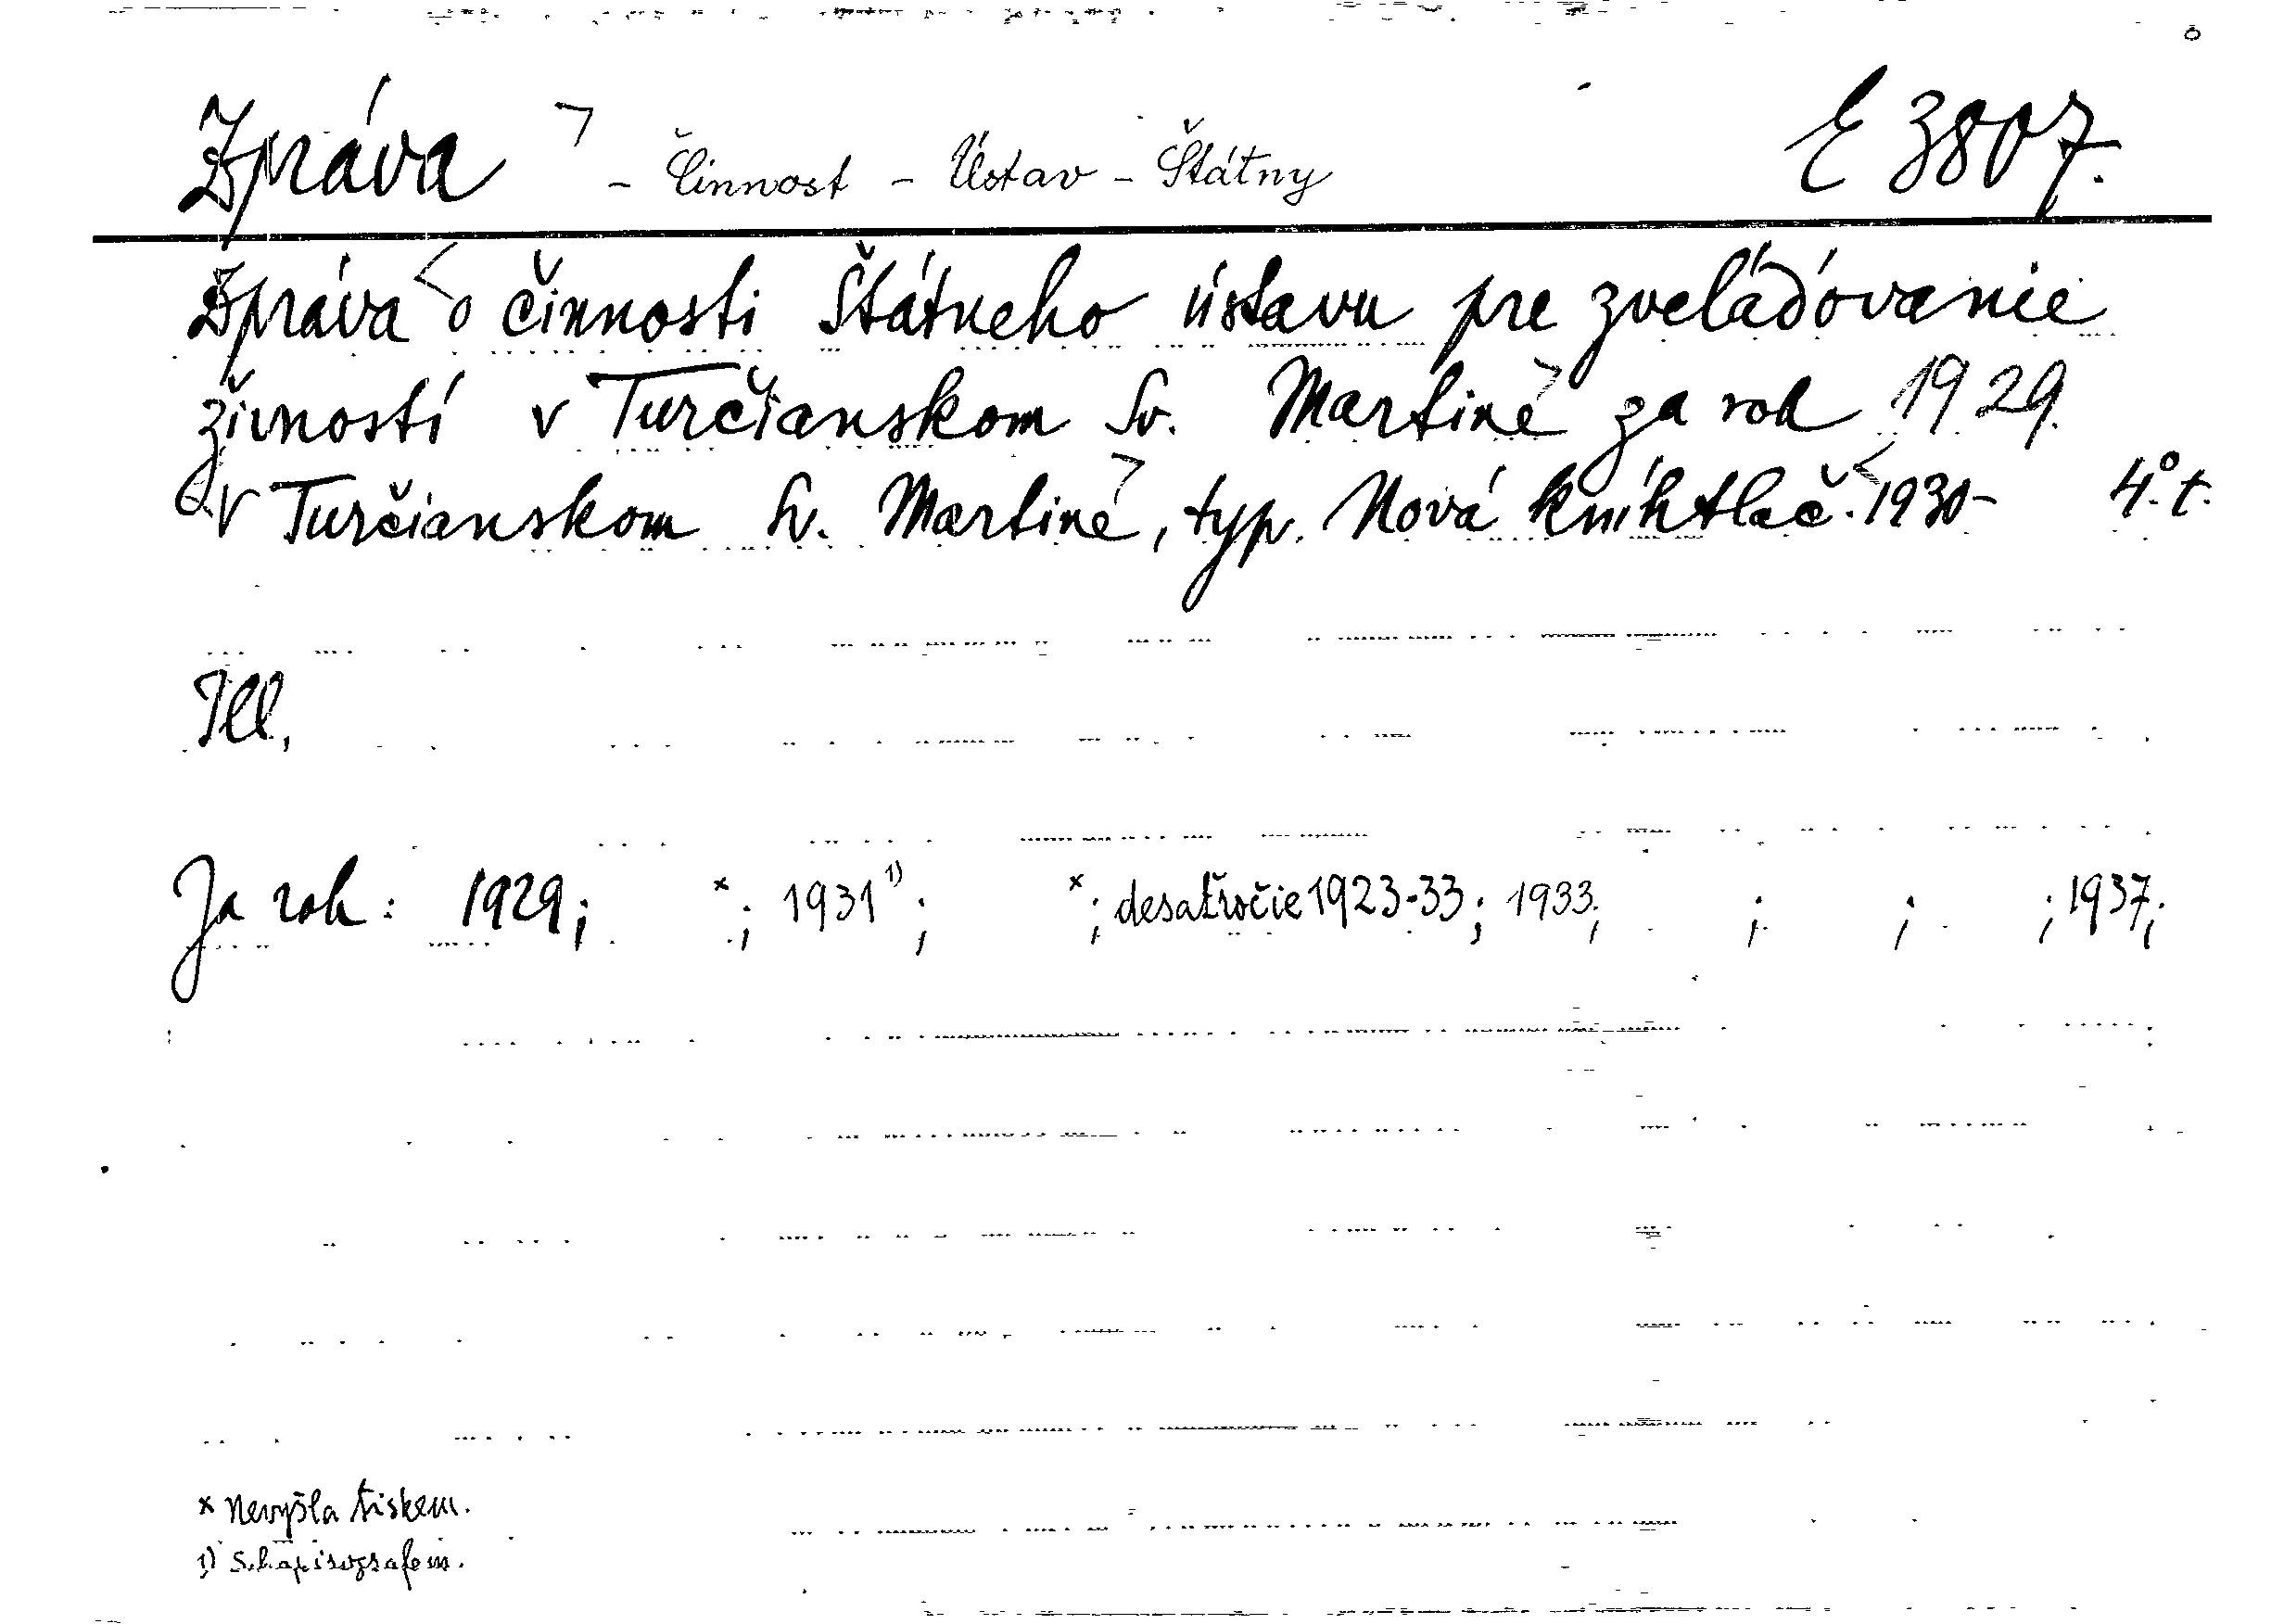 Zpráva - Činnost - Ústav - Štátny E 3807.
Zpráva o činnosti Štátneho ústavu pre zveľaďovanie
živností v Turčianskom Sv. Martine za rok 1929.
V Turčianskom Sv. Martine, typ. Nová kníhtlač. 1930- 4° t.
Ill.
Za rok: 1929; *; 1931 1); *; desaťročie 1923-33; 1933; ; ; ; 1937;
* Nevyšla tiskem.
1)